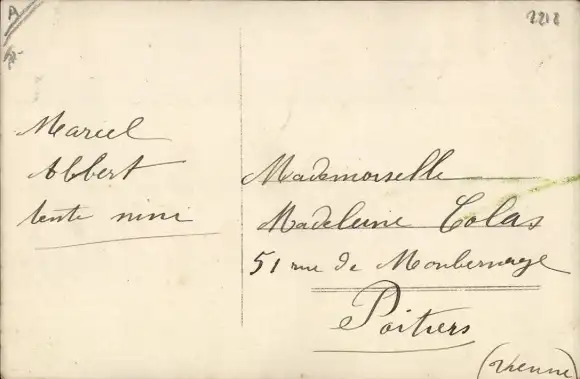 A
2212
Marcel
Albert
tente nini
Mademoiselle
Madeleine Colas
51 rue de Montbernage
Poitiers
(Vienne)